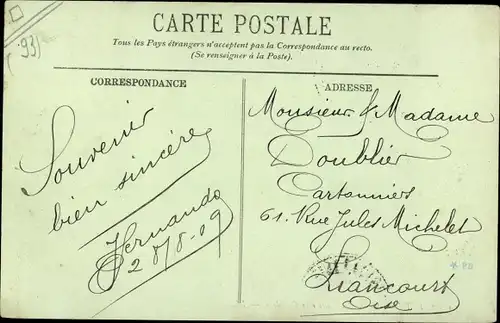 (93)
CARTE POSTALE
Tous les Pays étrangers n'acceptent pas la Correspondance au recto.
(Se renseigner à la Poste).
CORRESPONDANCE
Souvenir
bien sincère
Hernando
28/8-09
ADRESSE
Monsieur & Madame
Doublier
Cartonnier
61. Rue Jules Michelet
Liancourt
Oise